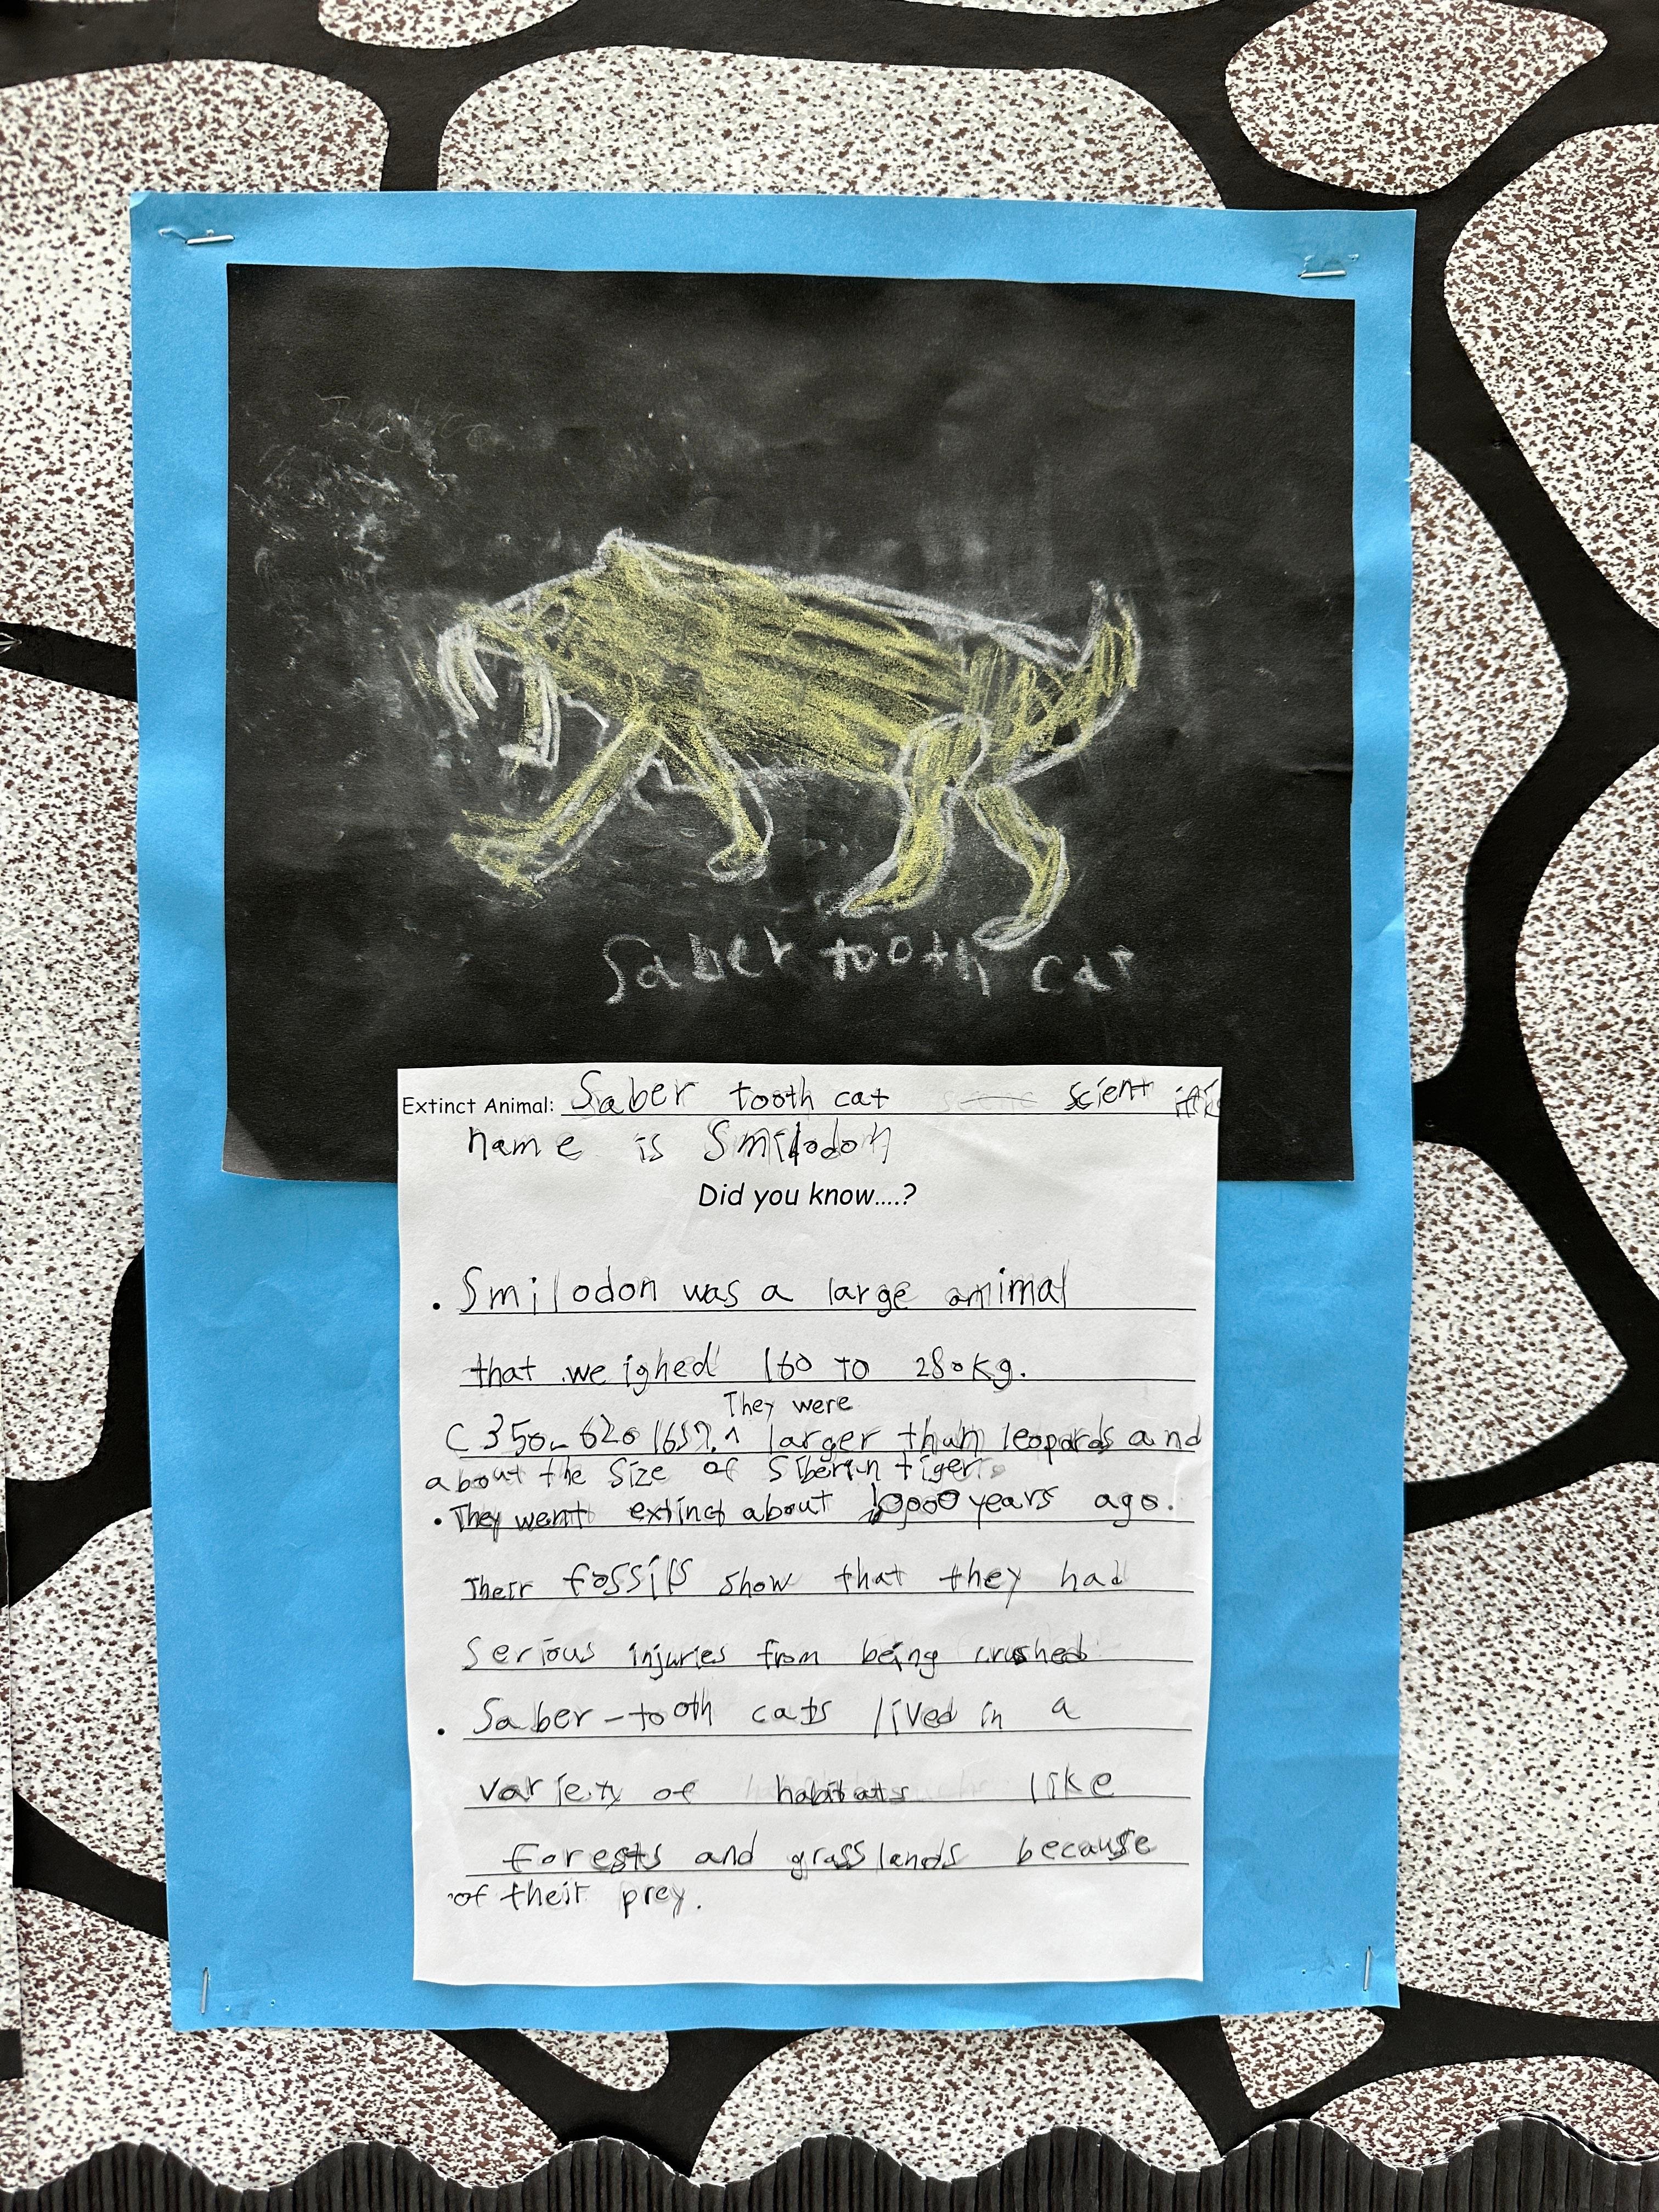 Saber tooth cat
Extinct Animal: Saber tooth cat scientific
name is Smilodon
Did you know....?
• Smilodon was a large animal
that weighed 160 to 280kg.
They were
(350-620 lbs). ^ larger than leopards and
about the size of Siberian tigers.
• They went extinct about 10,000 years ago.
Their fossils show that they had
serious injuries from being crushed
• Saber-tooth cats lived in a
variety of habitats like
forests and grasslands because
of their prey.